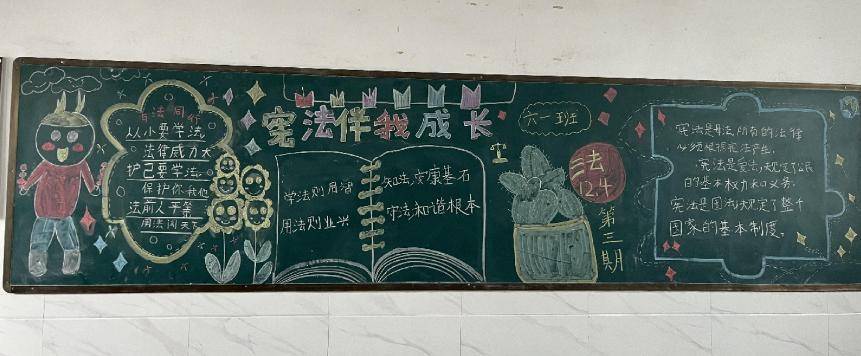 与法同行
从小要学法
法律威力大
护己要学法
保护你我他
法前人平等
用法闯天下
宪法伴我成长
学法则用活
用法则业兴
知法守康基石
守法和谐根本
六一班
法
12.4
第三期
宪法是母法,所有的法律
必须根据宪法产生。
宪法是宪法,规定了公民
的基本权力和义务。
宪法是国法,规定了整个
国家的基本制度。